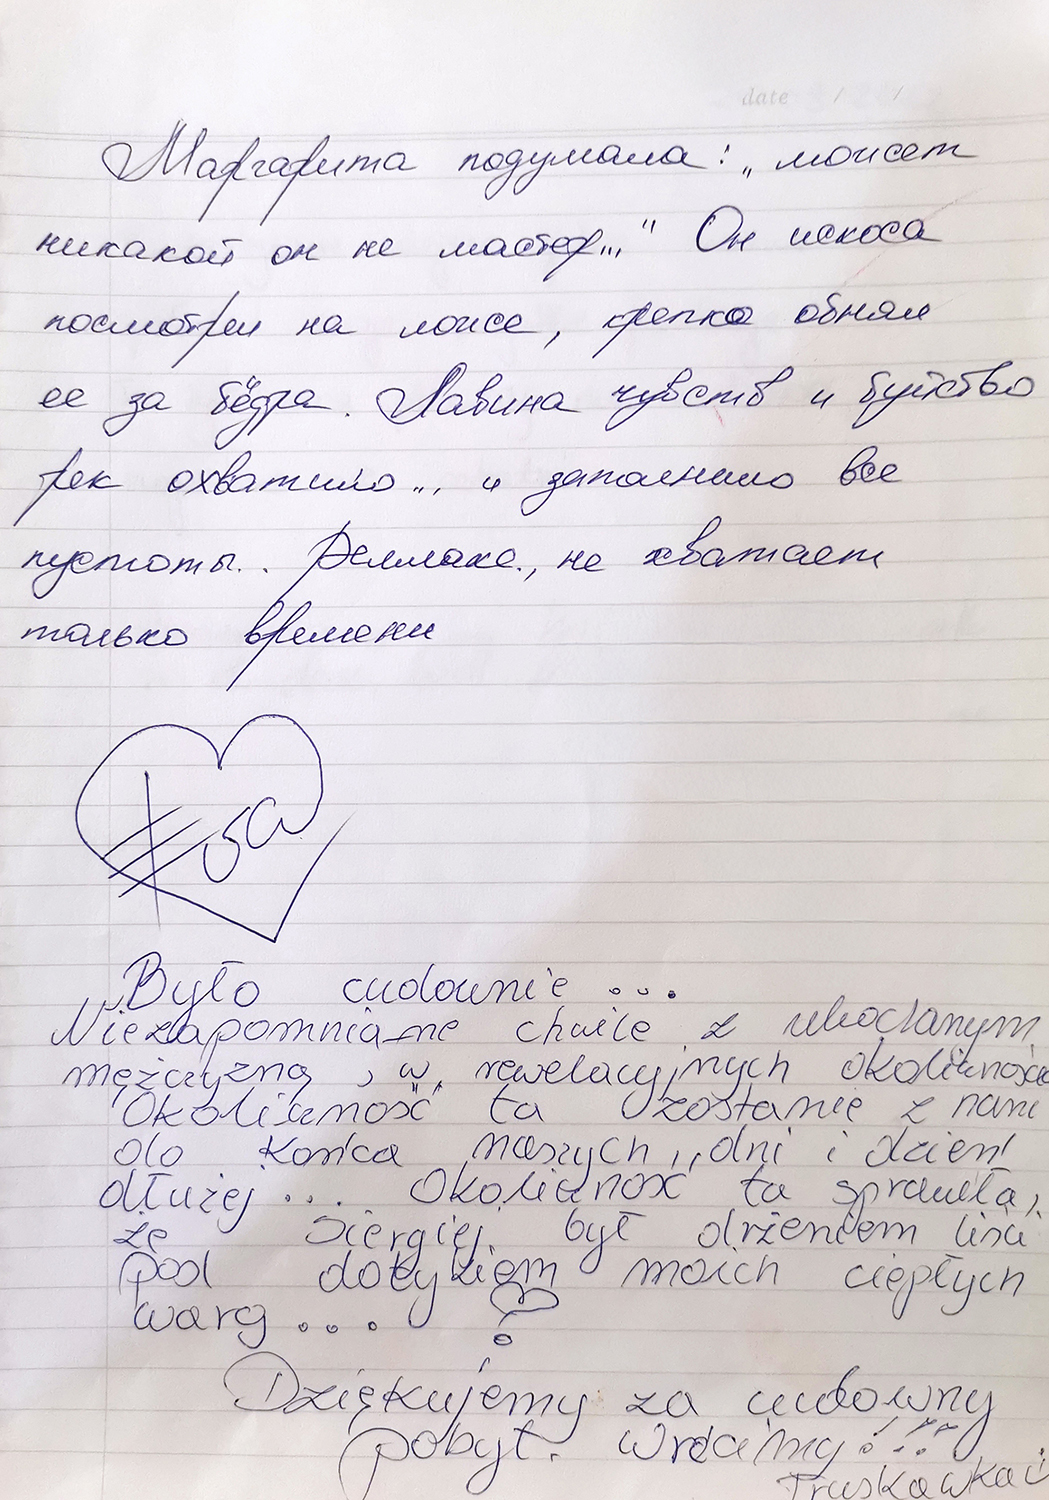 date / /
Маргарита подумала: „может
никакой он не мастер..." Он искоса
посмотрел на ложе, крепко обнял
ее за бёдра. Лавина чувств и буйство
рек охватило... и заполнило все
пустоты.. не хватает
только времени
„Było cudownie ...
Niezapomniane chwile z ukochanym
mężczyzną, w rewelacyjnych okolicznośc
Okoliczność ta zostanie z nami
do końca naszych „dni i dzień
dłużej ... Okoliczność ta sprawiła,
że Siergiej był drżeniem liści
pod dotykiem moich ciepłych
warg ...
Dziękujemy za cudowny
pobyt. Wrócimy!!!